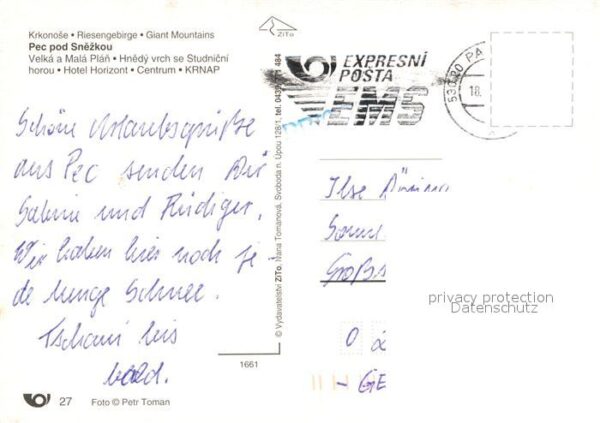 Krkonoše • Riesengebirge • Giant Mountains
Pec pod Sněžkou
Velká a Malá Pláň • Hnědý vrch se Studniční
horou • Hotel Horizont • Centrum • KRNAP
ZiTo
EXPRESNÍ
POŠTA
EMS
530 20 PA
18.
Schöne Urlaubsgrüße
aus Pec senden Dir
Sabine und Rüdiger.
Wir haben hier noch je
de Menge Schnee.
Tschaui bis
bald.
Ilse
Großs
0
- GE
privacy protection
Datenschutz
© Vydavatelství ZiTo, Hana Tomanová, Svoboda n. Úpou 128/1, tel. 484
1661
27 Foto © Petr Toman